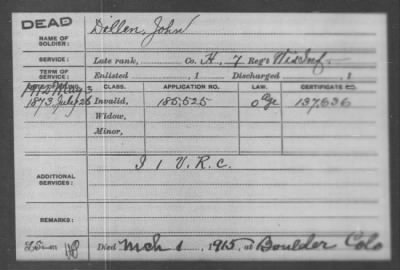 DEAD
NAME OF SOLDIER: Dillen, John
SERVICE: Late rank, Co. H, 7 Reg't Wis Inf.
TERM OF SERVICE: Enlisted , 1 Discharged , 1
CLASS. APPLICATION NO. LAW. CERTIFICATE NO.
1912 May 3
1873 July 25 Invalid, 185,525 O Age 137,636
Widow,
Minor,
ADDITIONAL SERVICES: I 1 V.R.C.
REMARKS:
Died Mch 1, 1915, at Boulder Colo